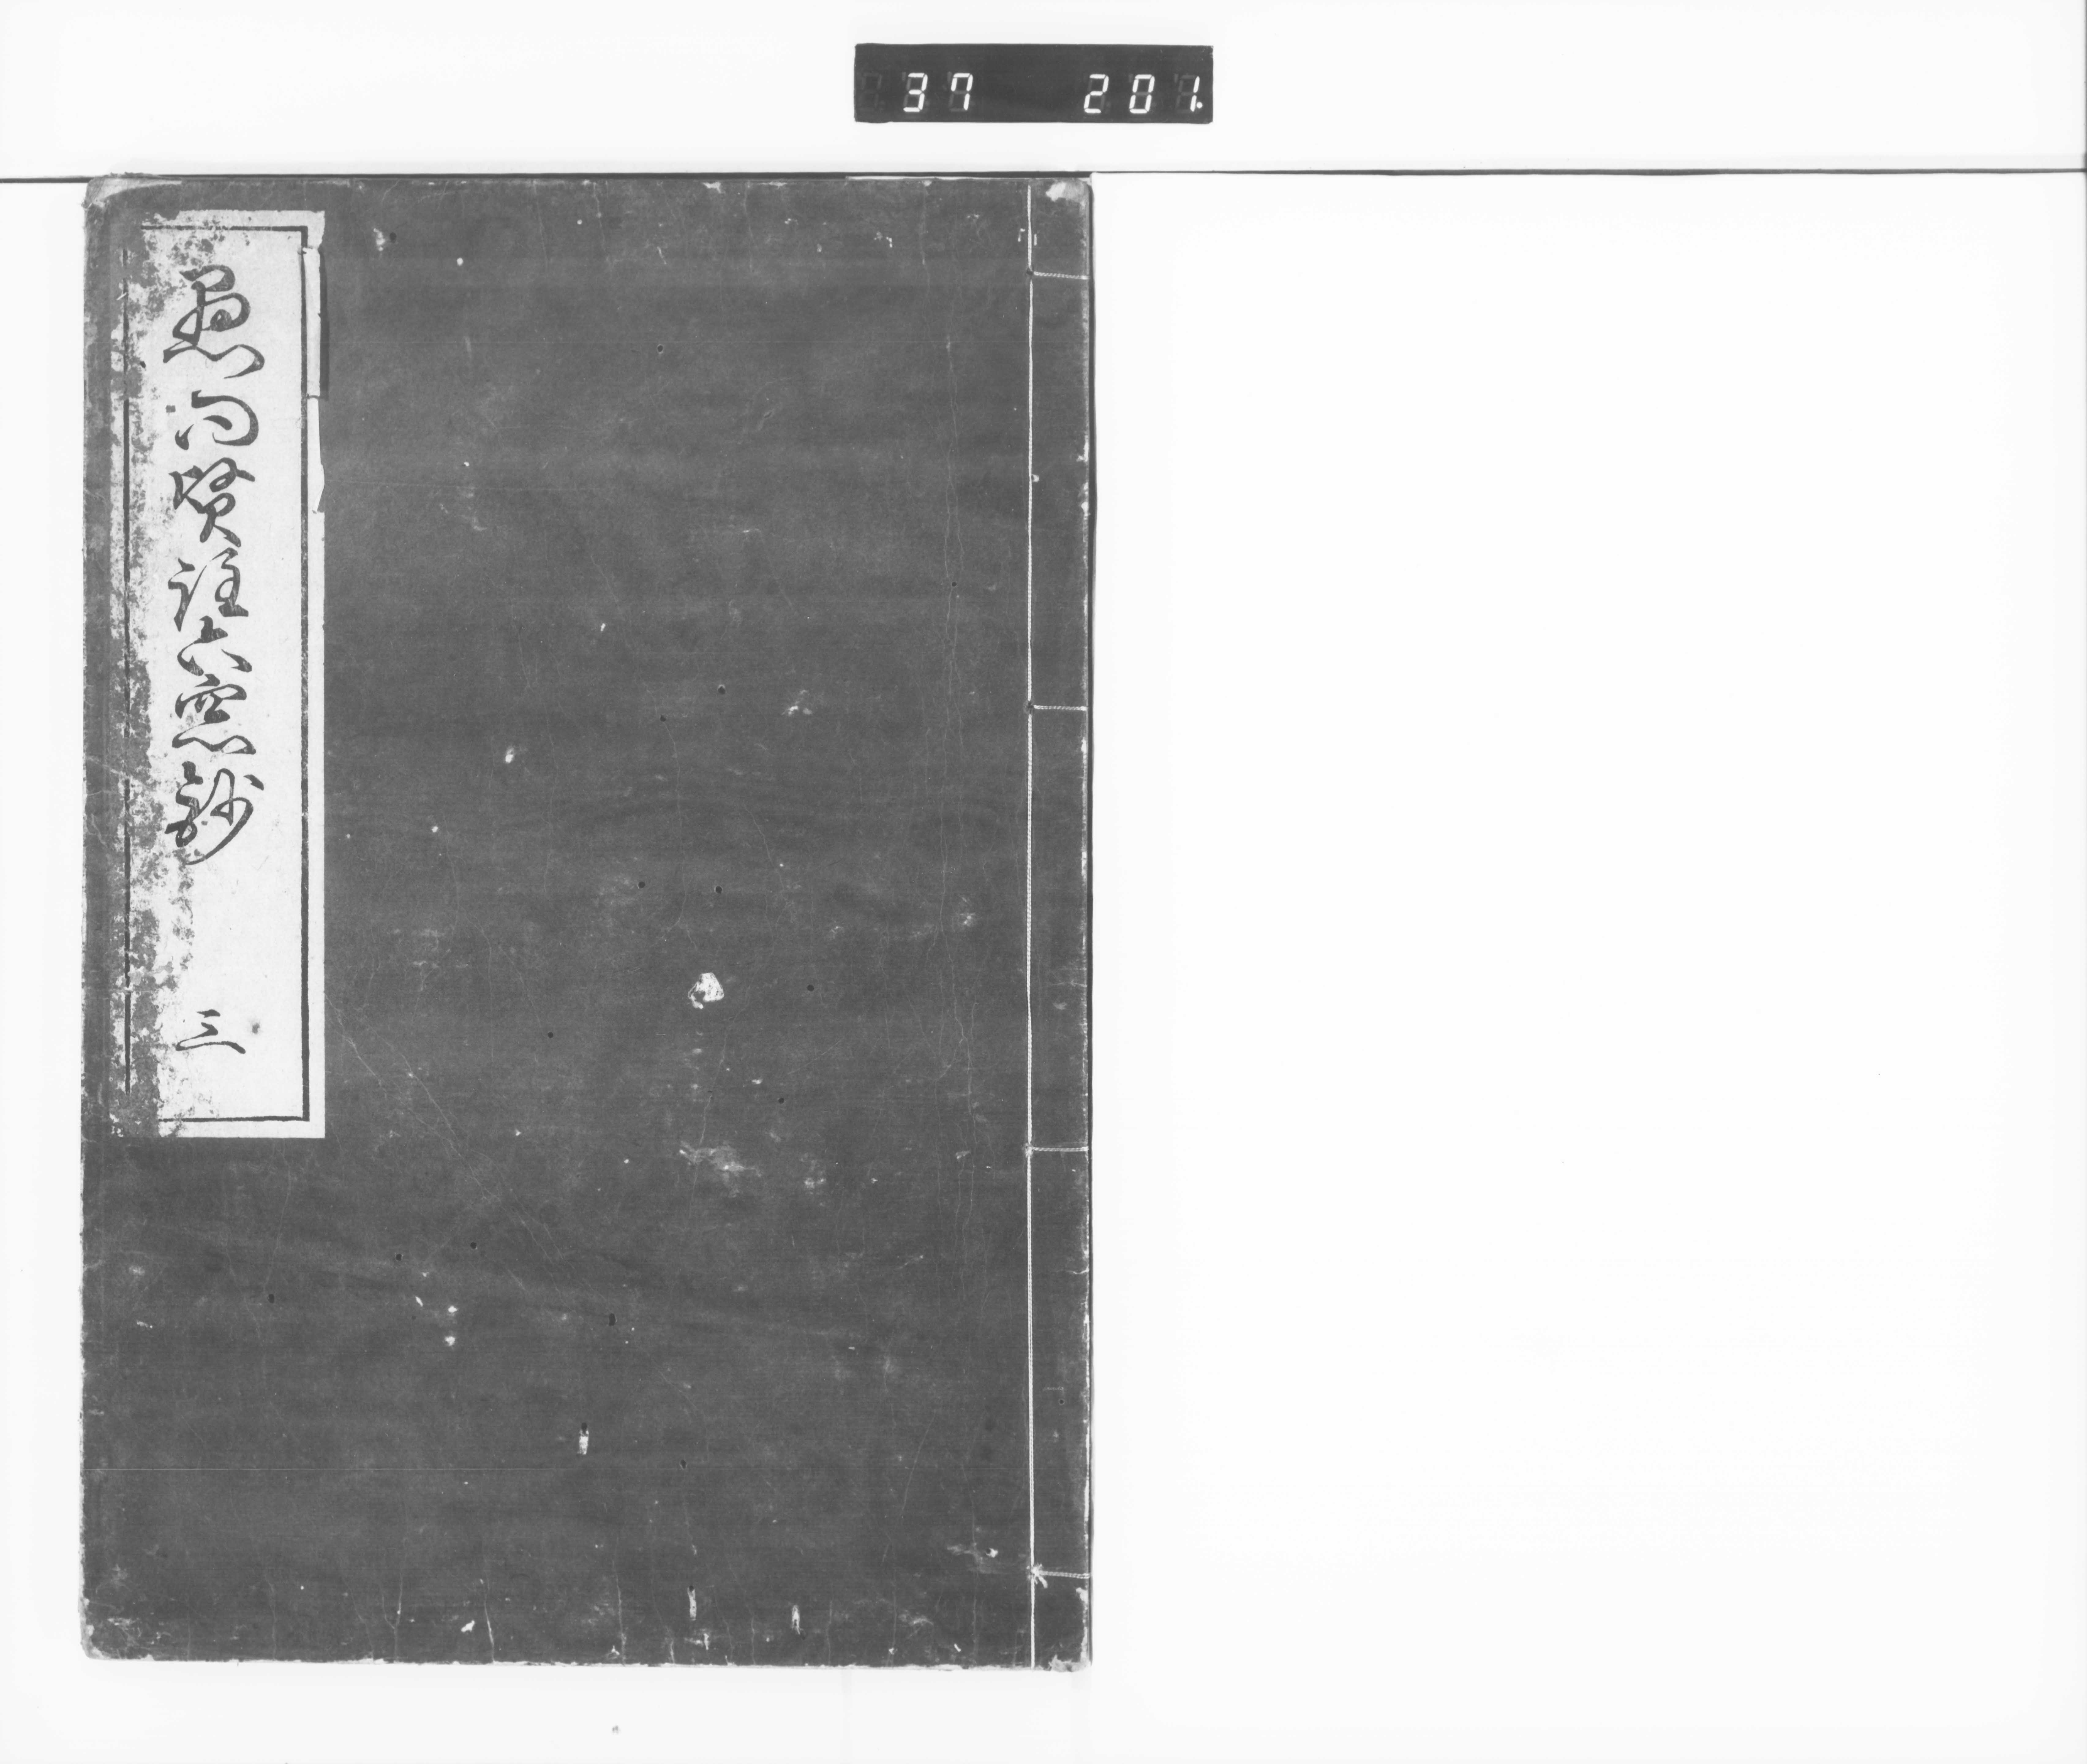 37 201.
愚問賢註六窓鈔 三